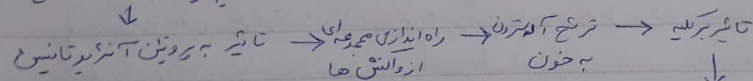 تاثیر بر کلیه → ترشح آلدسترون به خون → راه اندازی مجموعه ای از واکنش ها → تاثیر به پروتئین آنژیوتانسین